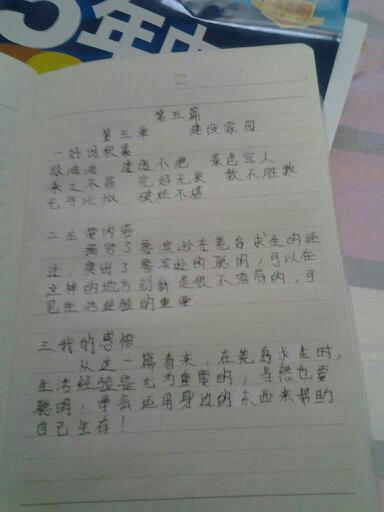 5年中
第五篇
第五章 建设家园
一好词积累
绿油油 连绵不绝 景色宜人
来之不易 完好无果 数不胜数
无可比拟 模糊不堪
二主要内容
描写了鲁滨逊在荒岛求生的经
过,突出了鲁滨逊的聪明,可以在
这样的地方创新是很不容易的,可
见生活经验的重要.
三我的感悟
从这一篇看来,在荒岛求生时,
生活经验是尤为重要的,当然也要
聪明,学会运用身边的东西来帮助
自己生存!